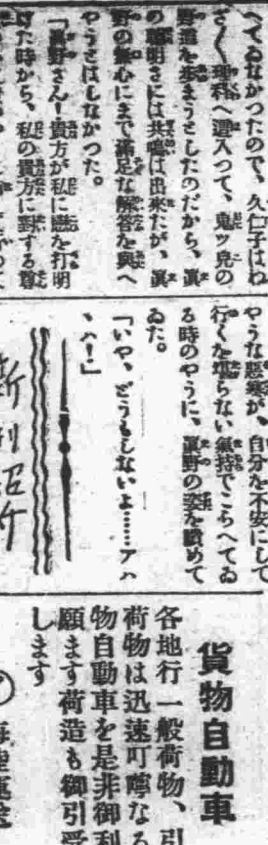 へてゐなかつたので、久仁子はわ
ざ〳〵理科へ這入つて、鬼ッ兒の
野道を歩まうとしたのだから、眞
の聰明さには共鳴は出來たが、眞
野の無心にまで滿足な解答を與へ
やうとはしなかつた。
「眞野さん！貴方が私に戀を打明
けた時から、私の貴方に對する尊
やうな惡寒が、自分を不安にして
行くを堪らない氣持でこらへてゐ
る時のやうに、眞野の姿を眺めて
ゐた。
「いや、どうもしないよ……アハ
ヽハ！」
新刊紹介
貨物自動車
各地行一般荷物、引
荷物は迅速叮嚀なる
物自動車を是非御利
願ます荷造も御引受
します